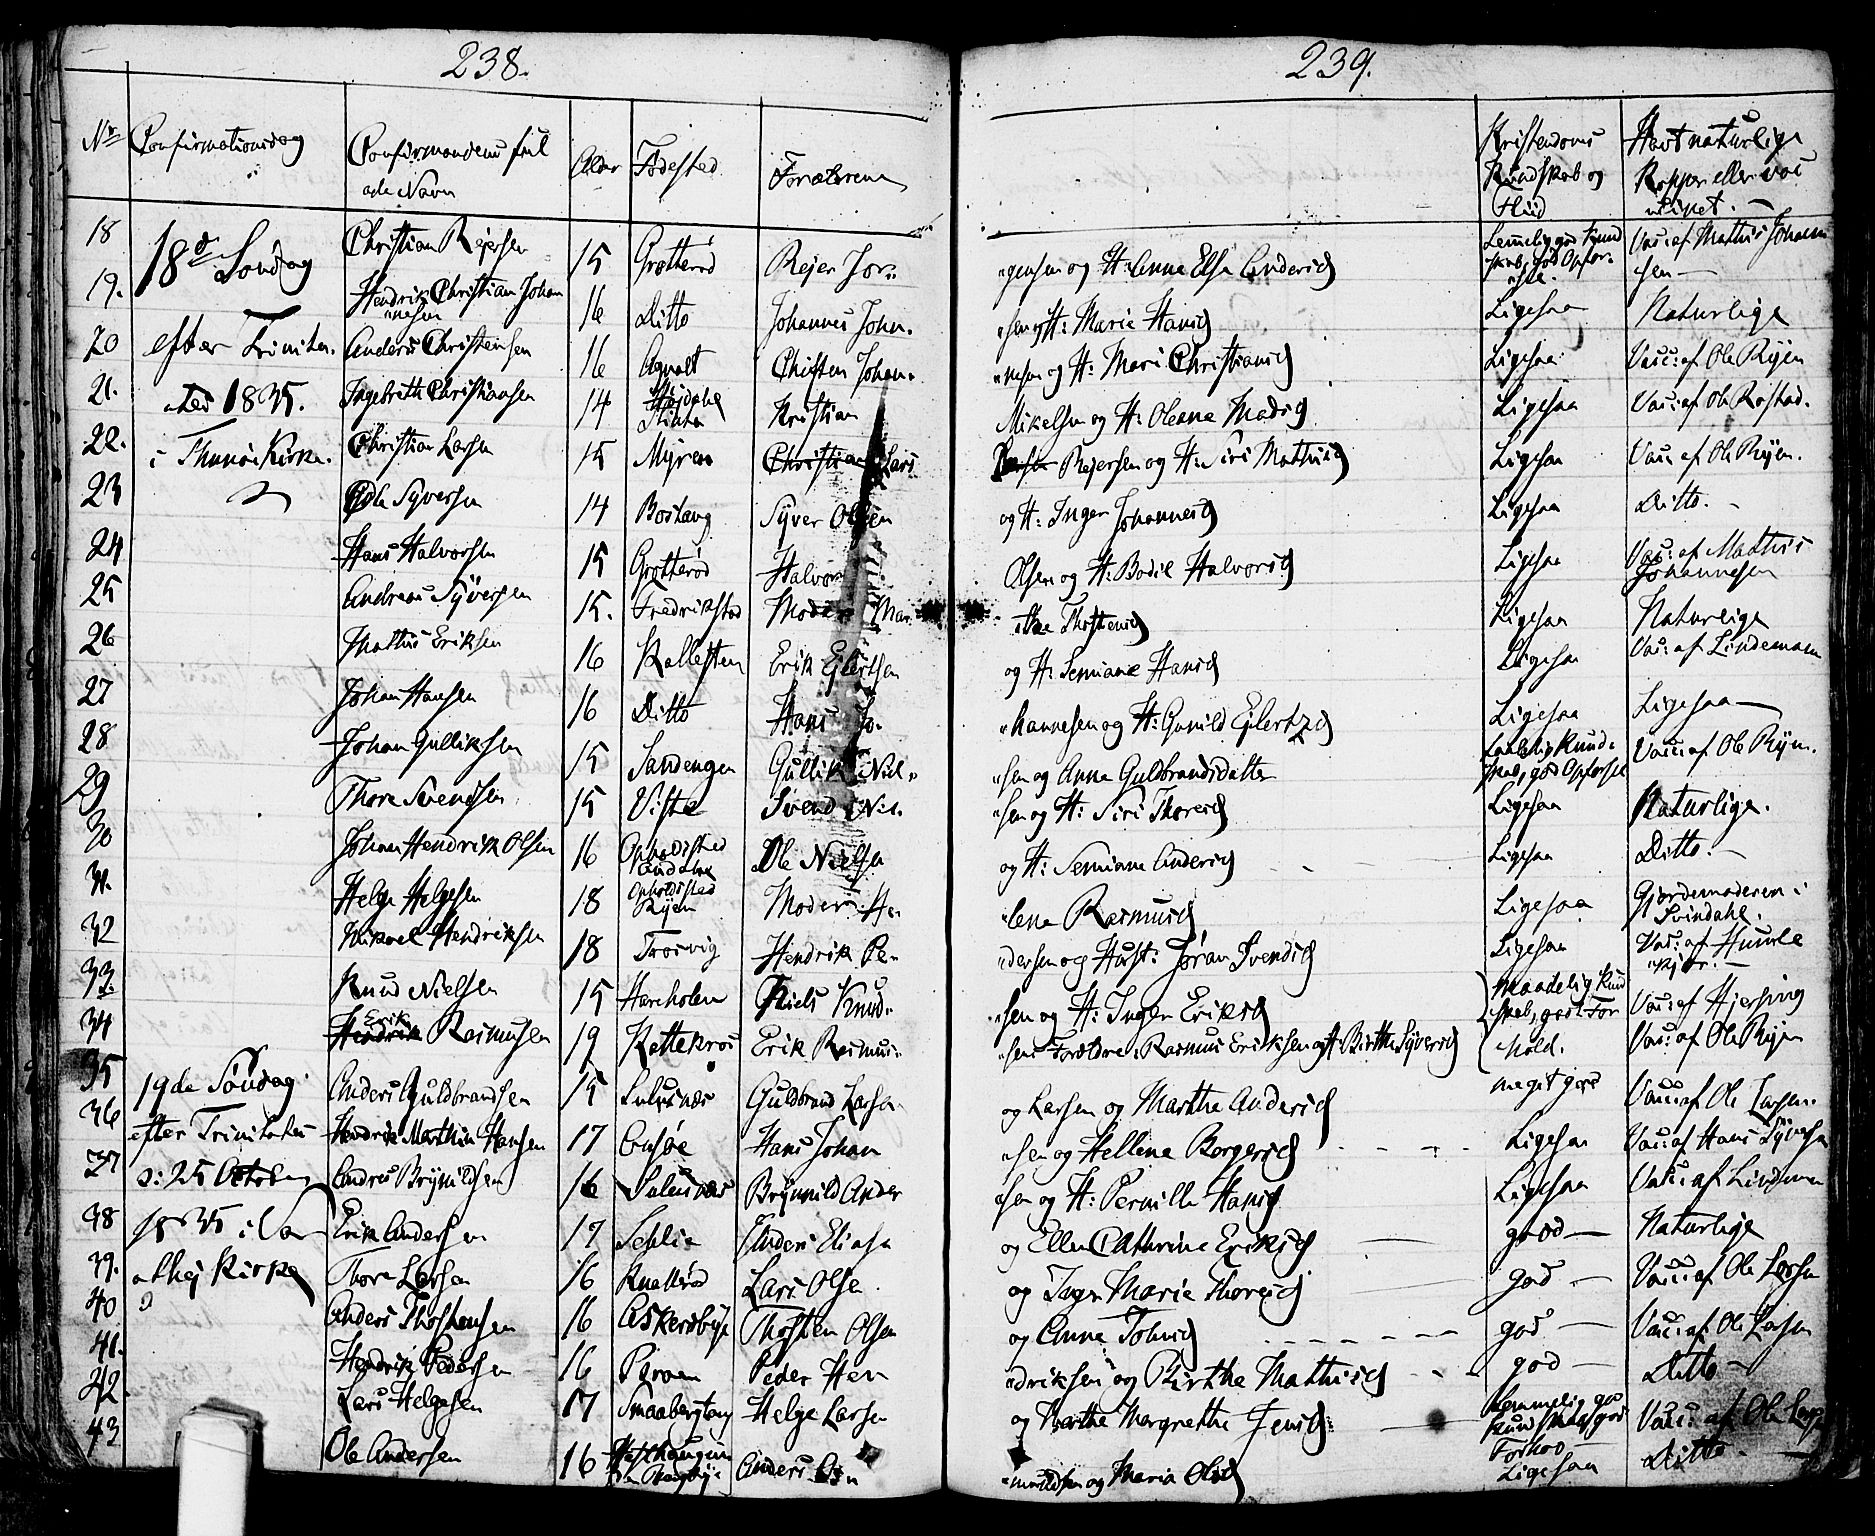 238.
239.
No Confirmationsdag Confirmandens ful Alder Fødested Forældrene Kristendoms Havt naturlige
ade Navn Kundskab og Kopper eller vac
Flid cineret. —
18 18de Søndag Christian Rejersen 15 Grøtterød Rejer Jør- gensen og H: Anne Elsa Andersd Temmelig god Kund Vacc: af Mathis Johann
skab, god Opfør- sen —
19. Hendrik Christian Johan 16 Ditto Johannes Johan- sen og H: Marie Hansd Ligesaa Naturlige
nesen
20 efter Trinita- Anders Christensen 16 Agnalt Chisten Johan- nesen og H: Mari Christiansd Ligesaa Vacc: af Ole Ryen
21. tis 1835. Ingebreth Christiansen 14 Højdahl Kristian Mikelsen og H: Oleana Madsd Ligesaa Vacc: af Ole Rostad.
22. i Thunøe Kirke. Christian Larsen 15 Myren Christian Lars Larsen Rejersen og H: Siri Mathisd Ligesaa Vacc: af Ole Ryen.
23 Ole Syversen 14 Bostang Syver Olsen og H: Inger Johannesd Ligesaa Ditto. —
24 Hans Halvorsen 15 Grøtterød Halvor Olsen og H: Bodil Halvorsd Ligesaa Vacc: af Mathis
Johannesen
25 Andreas Syversen 15. Fredrikstad Moder Mar- the Thostensd Ligesaa Naturlige
26 Mathis Eriksen 16 Kallesten Erik Ejlertsen og H: Semiane Hansd Ligesaa Vac: af Lindeman
27 Johan Hansen 16 Ditto Hans Jo- hannesen og H: Gunild Ejlertzd Ligesaa Ligesaa —
28 Johan Gulliksen 15 Sandengen Gullik Niel- sen og Anna Guldbrandsdatter Kund- Vacc: af Ole Ryen.
skab, god Opførsel
29 Thore Svendsen 15 Viste Svend Nil- sen og H: Siri Thoresd Ligesaa Naturlige.
30 Johan Hendrik Olsen 16 Opholdsted Ole Nielsen og H: Semiane Andersd Ligesaa Ditto. —
31. Helge Helgesen 18 Opholdsted Moder: He- lena Rasmusd Ligesaa Gjordemoderen i
Ryen Svindahl.
32 Mikael Hendriksen 18 Trosvig Hendrik Pe- dersen og Hust: Jøran Svendsd Ligesaa Vac: af Humle
kjær. —
33. Knud Nielsen 15 Hareholen Niels Knud- sen og H: Inger Eriksd Maadelig Kund Vacc: af Hjersing
skab, godt For
34 Erik
Hendrik Rasmusen 19 Kattekros Erik Rasmus- sens Forældre: Rasmus Eriksen og H: Birthe Syversd hold. Vac: af Ole Ryen
35 19de Søndag Anders Guldbrandsen 15 Guldbrand Larsen og Larsen og Marthe Andersd meget god Vacc: af Ole Larsen.
36 efter Trinitatis Hendrik Marthin Hansen 17 Hans Johan sen og Hellene Borgersd Ligesaa Vacc: af Hans Syversen
37 d: 25 October Andres Brynildsen 16 Brynnild Ander sen og H: Pernille Hansd Ligesaa Vacc: af Lindman
38 1835 i Va- Erik Andersen 17 Sehlie Anders Eliasn og Ellen Cathrine Eriksd good — Naturlige
39. athej Kirke Thore Larsen 16 Knatterød Lars Olsen og Inger Marie Thoresd god — Vacc: af Ole Larsen
40 Anders Thostensen 16 Askersbye Thosten Olsen og Anna Tolvsd god — Vacc: af Ole Larsen
41. Hendrik Pedersen 16 Peder Hen- driksen og Birthe Mathisd god — Ditto —
42. Lars Helgesen 17 Smaabergtang Helge Larsen og Marthe Margrethe Jensd Temmelig god Vacc: af Ole Larsen
43 Ole Andersen 16 Anders mundsen og Maria Olsd Ligesaa Ditto —